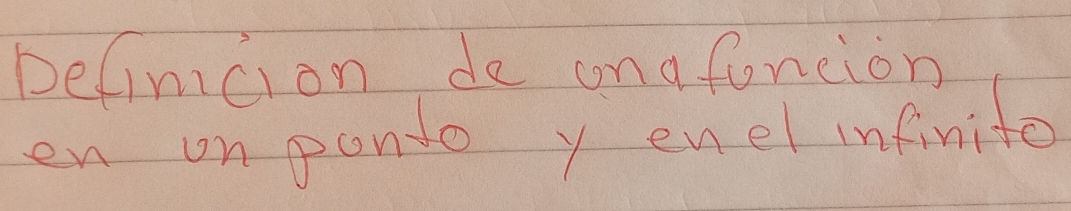 Definición de una función
en un punto y en el infinito